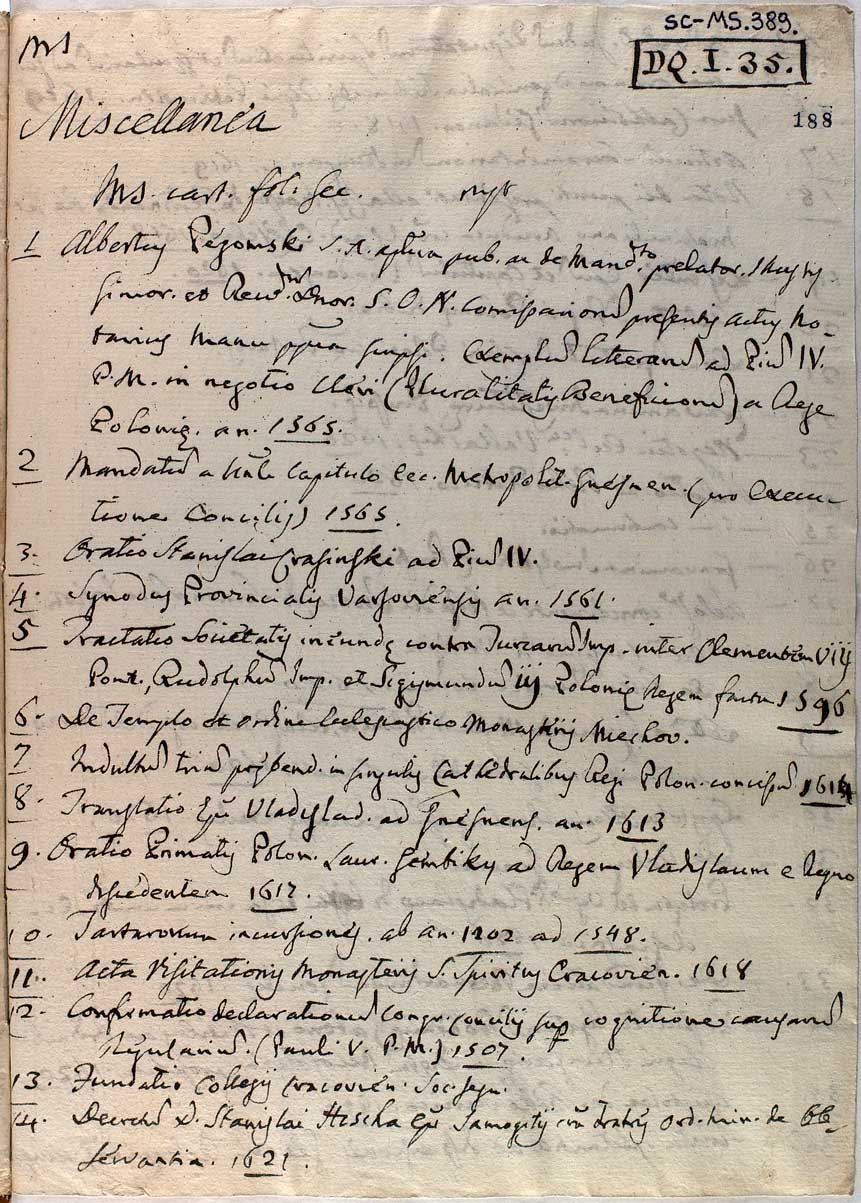 Ms
SC-MS.389.
DQ. I. 35.
Miscellanea
188
Ms. cart. fol. sec.
1 Albertus S. A. pub. ac de Mand.to prelator. Illustris
simor. et Reud. Dnor. S. O. N. presentis actus No-
tarius manu scripsi. Exemplũ litterarũ ad Piũ IV.
P.M. in negotio Cleri (Pluralitatis Beneficiorũ) a Rege
Polonię. an. 1565.
2 Mandatũ a Capitulo Ecc. Metropolit. Gnesnen. (pro Execu-
tione Concilij) 1565.
3. Oratio Stanislai Crasinski ad Piũ IV.
4. Synodus Provincialis Varsoviensis an. 1561.
5 Tractatio Societatis ineundę contra Turcarũ Imp. inter Clementem VIIJ
Pont., Rudolphũ Imp. et Sigismundũ iij Polonię Regem facta 1596
6. De Templo et ordine Eclesiastico Monasterij Miechov.
7 Indultũ triũ prębend. in singulis Cathedralibus Regi Polon. concessũ 1614
8. Translatio Epũ Vladislav. ad Gnesnens. an. 1613
9. Oratio Primatis Polon. Laur. Gembiky ad Regem Vladislaum e Regno
discedentem 1617.
10. Tartarorum incursiones. ab an. 1202 ad 1548.
11. Acta Visitationis Monasterij S. Spiritus Cracovien. 1618
12. Confirmatio declarationũ Congr. Concilij sup cognitione causarũ
Regulariũ. (Pauli V. P. M.) 1507.
13. Fundatio Collegij Cracovien. Soc. Jesu.
14. Decretũ D. Stanislai Kiscka Epũ Samogitię cũ Fratrib. Ord. Min. de Ob-
servantia. 1621.